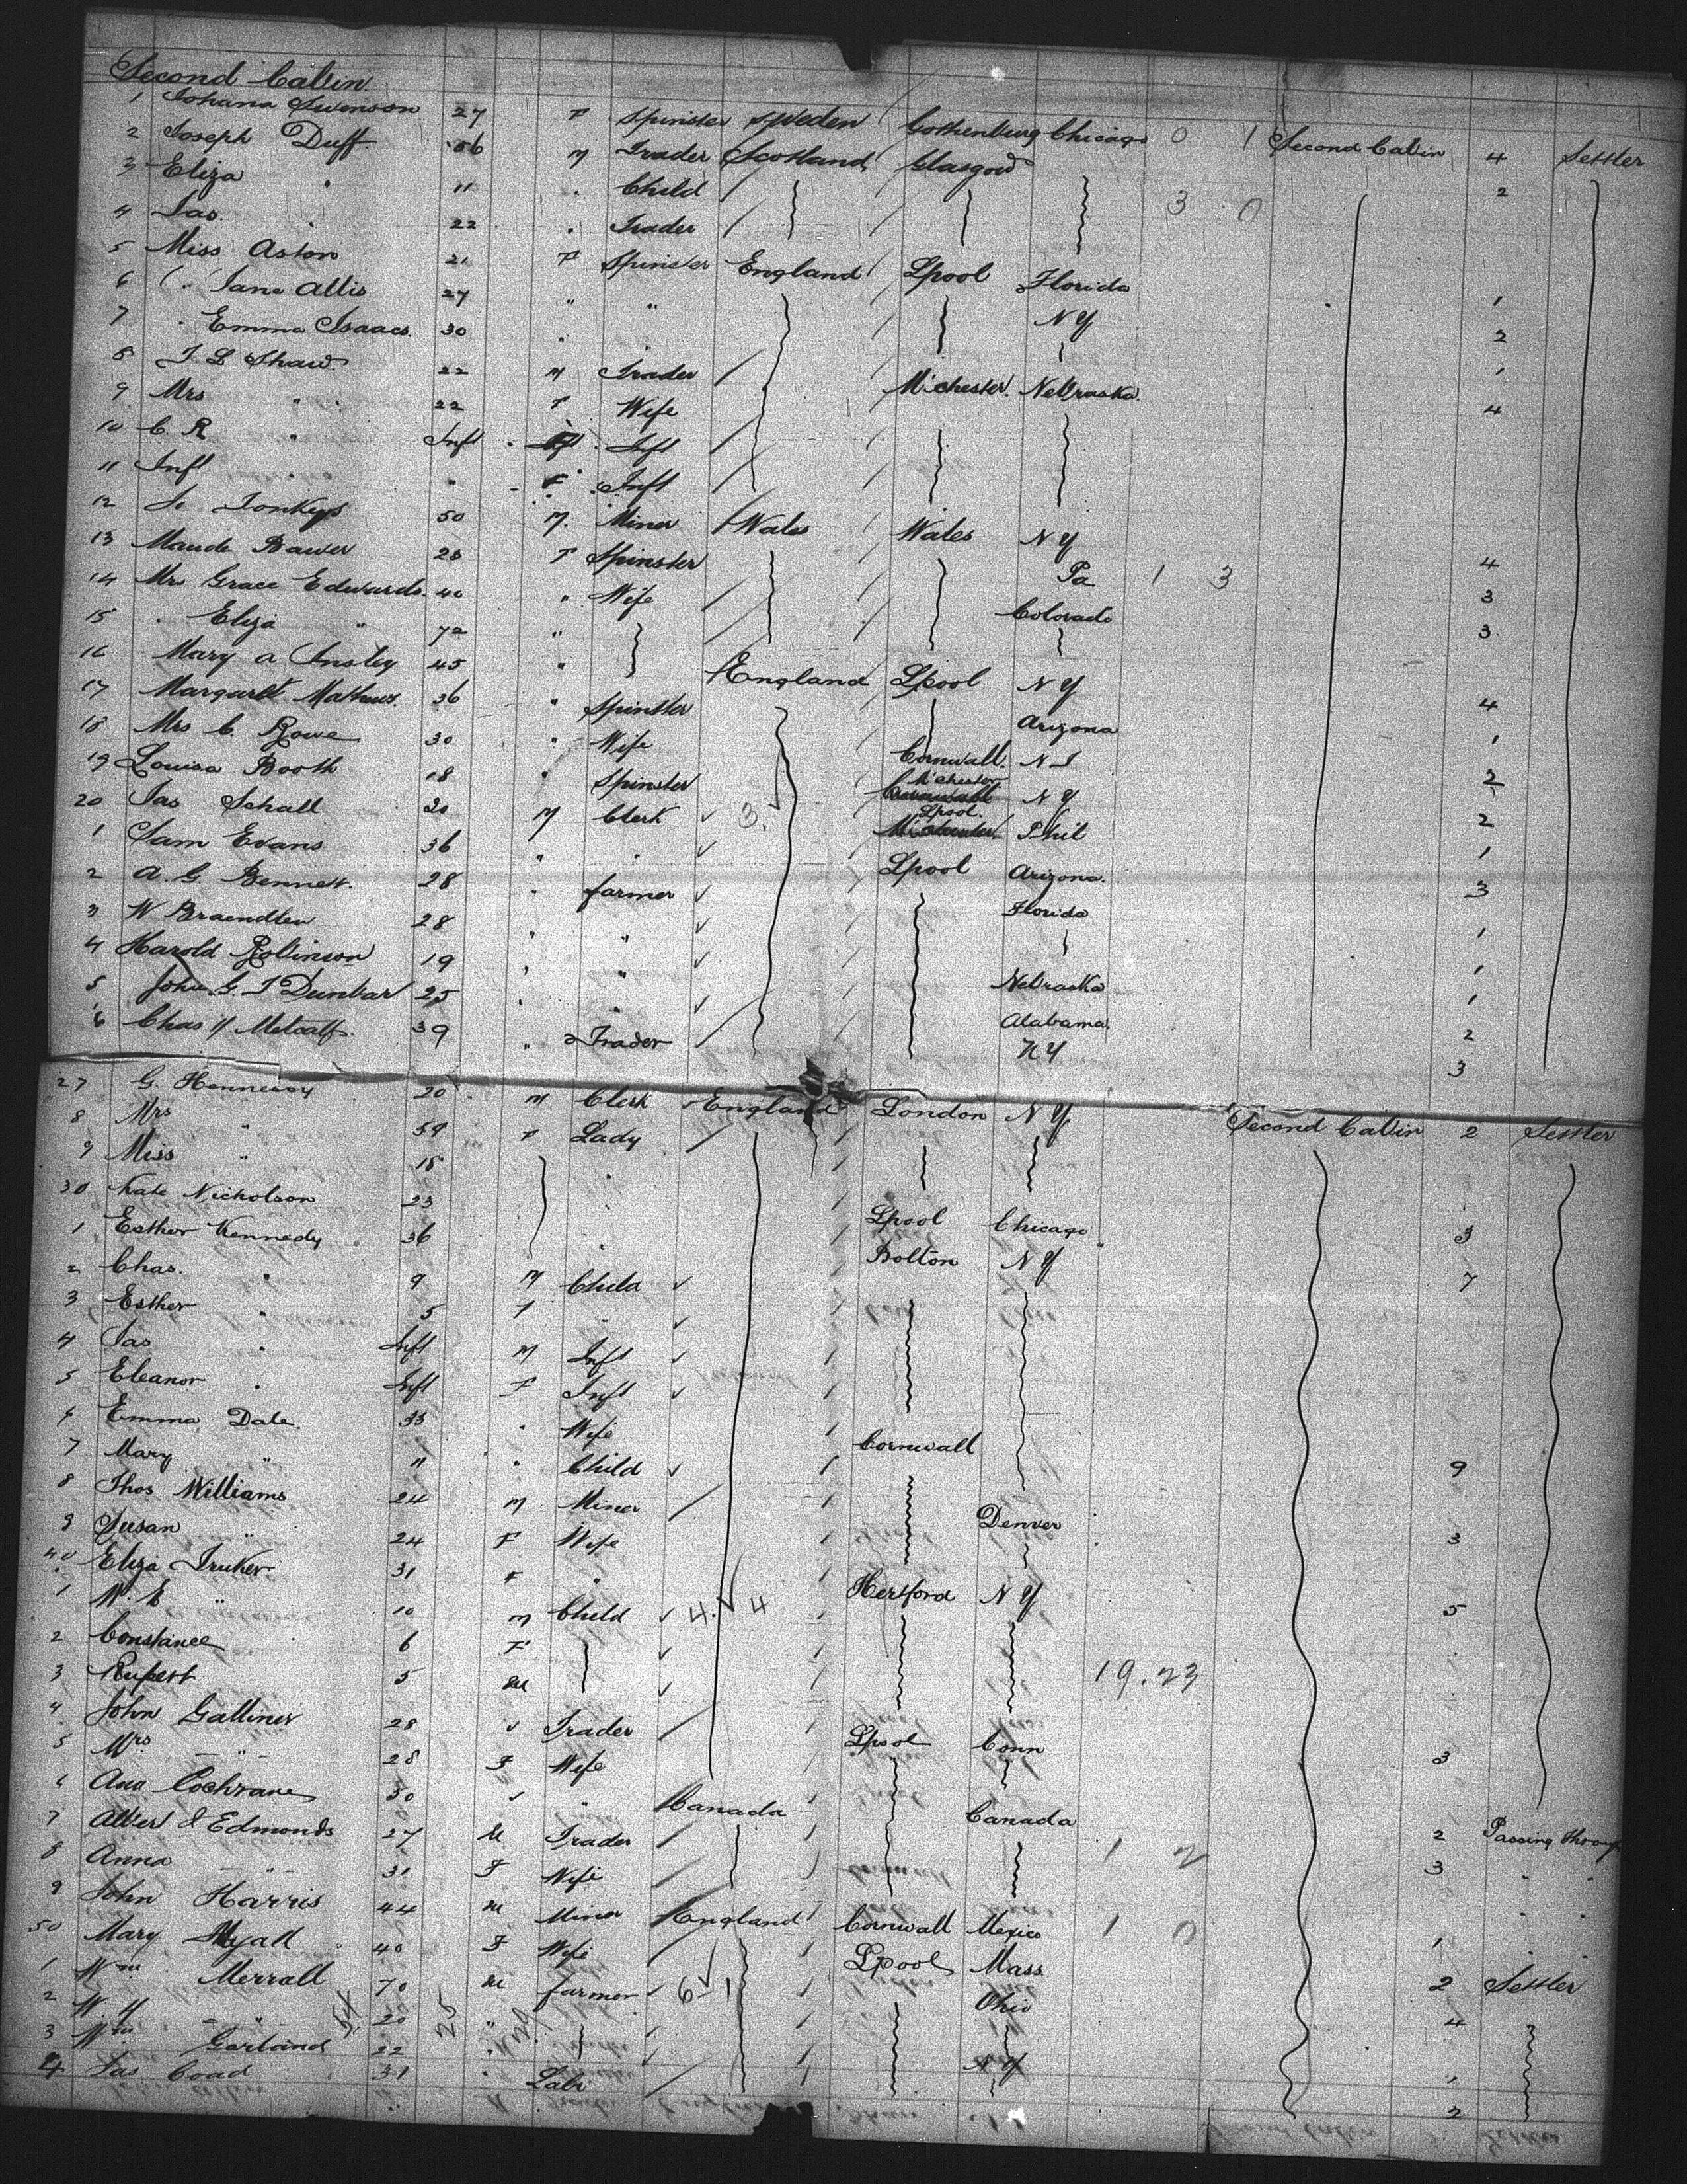 Second Cabin
1 Johana Swenson 27 F Spinster Sweden Gothenburg Chicago 0 1 Second Cabin 4 Settler
2 Joseph Duff 56 M Trader Scotland Glasgow 2
3 Eliza " 11 " Child 3 0
4 Jas. " 22 " Trader
5 Miss Aston 21 F Spinster England Lpool Florida 1
6 " Jane Allis 27 " " N Y 2
7 " Emma Isaacs 30 " " 1
8 J. L Shaw 22 M Trader M'chester Nebraska 4
9 Mrs " 22 F Wife
10 C. R " Inft Inft
11 Inft " F Inft
12 Tonkeys 50 M Miner Wales Wales N Y 4
13 Maude Bawer 28 F Spinster Pa 1 3 3
14 Mrs Grace Edwards 40 " Wife Colorado 3
15 " Eliza " 72 "
16 Mary A Ansley 45 " England Lpool N Y 4
17 Margaret Mathews 36 " Spinster Arizona 1
18 Mrs C. Rowe 30 " Wife Cornwall 2
19 Louisa Booth 18 " Spinster M'chester N Y 2
20 Jas Schall 20 M Clerk 3 Lpool Phil 1
1 Sam Evans 36 " " Lpool Arizona 3
2 A. G. Bennett 28 " farmer Florida 1
3 W 28 " " 1
4 Harold Rollinson 19 " " Nebraska 1
5 John G. I Dunbar 25 " " Alabama 2
6 Chas H Metcalf 39 " Trader N Y 3
27 G. Hennessy 20 M Clerk England London N Y Second Cabin 2 Settler
8 Mrs " 59 F Lady
9 Miss " 18 "
30 Kate Nicholson 23 " Lpool Chicago 3
1 Esther Kennedy 36 " Bolton N Y 7
2 Chas. " 9 M Child
3 Esther 5 F
4 Jas " Inft M Inft
5 Eleanor " Inft F Inft
6 Emma Dale 33 " Wife Cornwall 9
7 Mary " 11 " Child
8 Thos Williams 24 M Miner Denver 3
9 Susan " 24 F Wife
40 Eliza Truker 31 F " Hertford N Y 5
1 W. E " 10 M Child 4 4
2 Constance 6 F
3 Rupert 5 M 19.23
4 John Galliner 28 " Trader Lpool Conn 3
5 Mrs " 28 F Wife
6 Ann Cochrane 30 " " Canada Canada 2 Passing through
7 Albert J Edmonds 27 M Trader 1 2 3 " "
8 Anna " 31 F Wife
9 John Harris 44 M Miner England Cornwall Mexico 1 0 1 " "
50 Mary Myall 40 F Wife Lpool Mass 2 Settler
1 Wm Merrall 70 M farmer 6 1 Ohio 4
2 W. H " 20 "
3 Wm Garland 22 " N Y 1
4 Jas Coad 31 " Labr 2